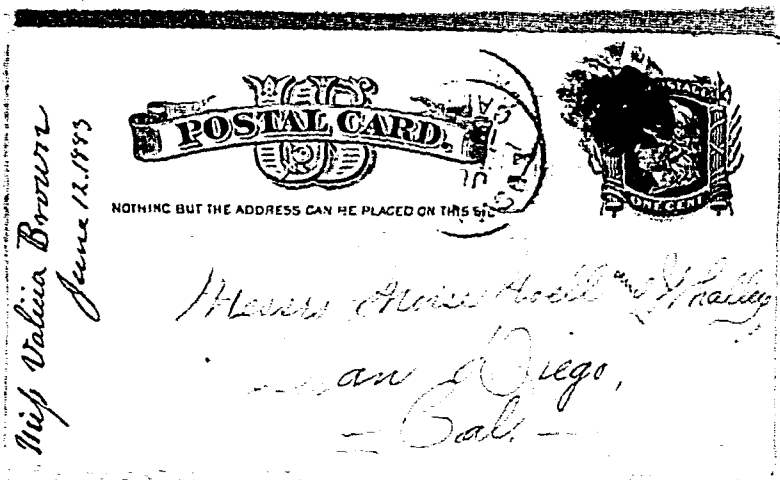 Miss Valina Brown
June 12. 1893
U S
POSTAL CARD.
NOTHING BUT THE ADDRESS CAN BE PLACED ON THIS SIDE
ONE CENT
Messrs Morse Noell and Whaley
San Diego,
Cal.